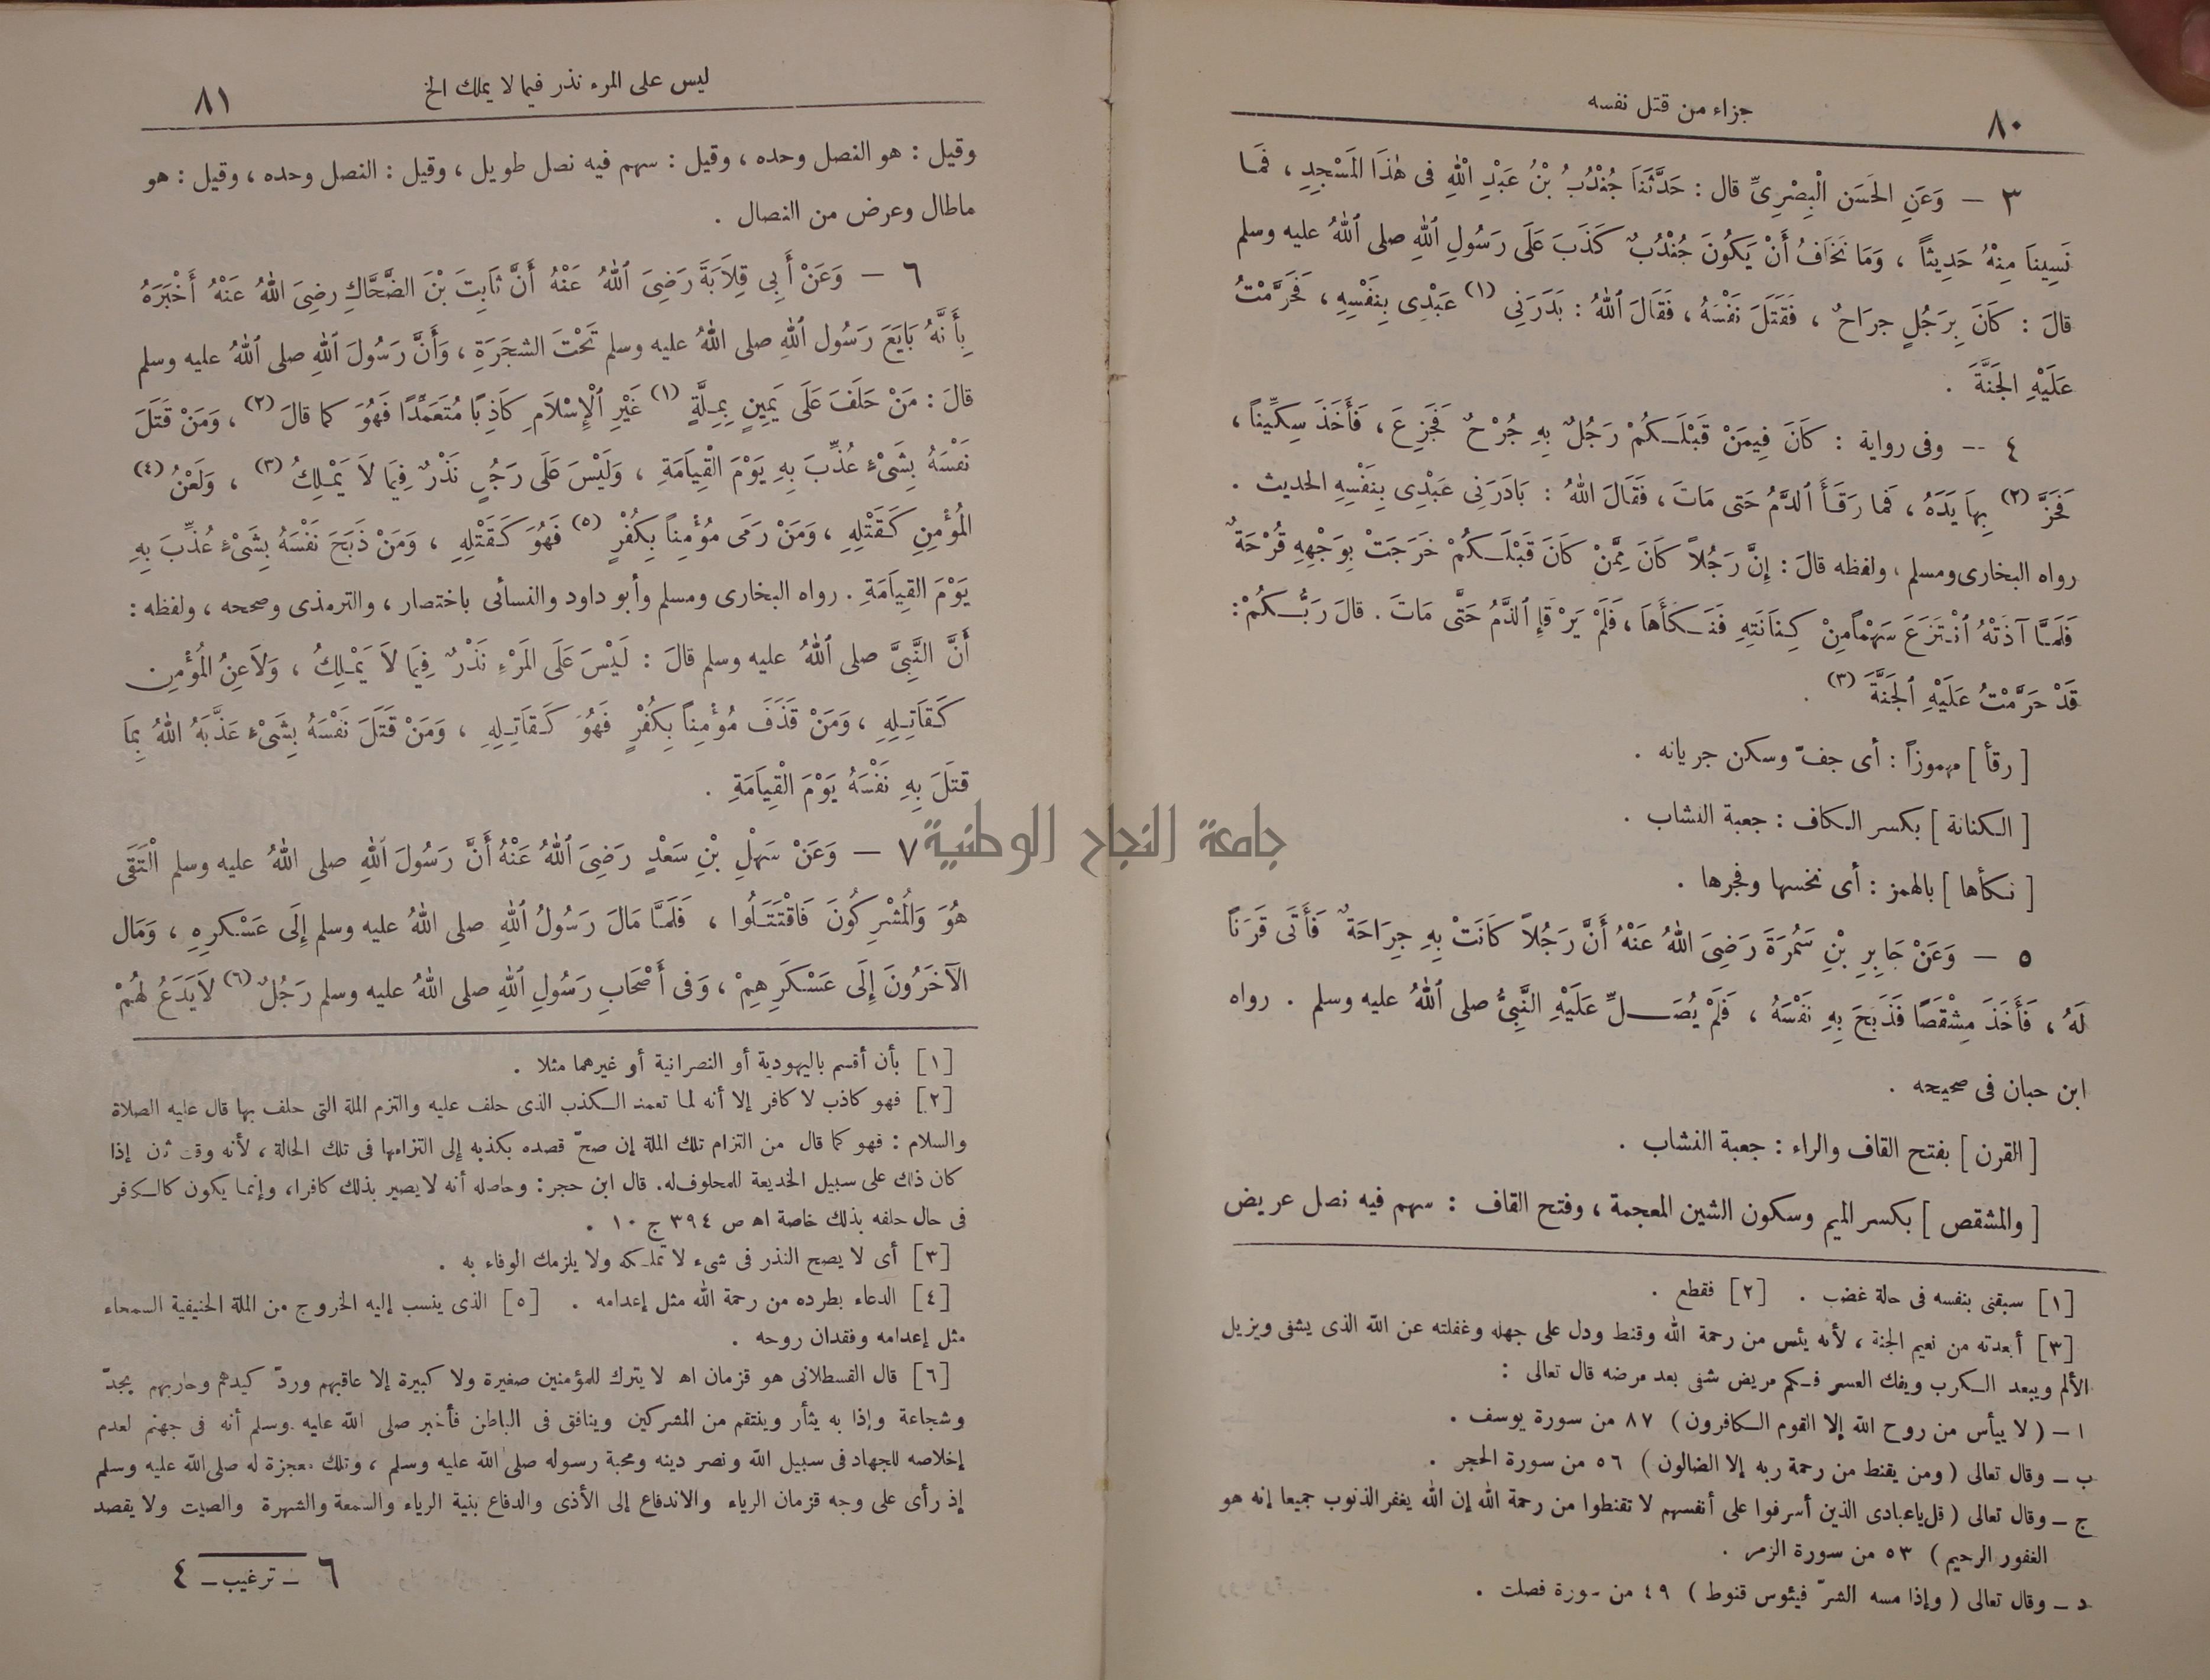 ٨٠
جزاء من قتل نفسه
٣ – وَعَنِ الحَسَنِ الْبِصْرِىِّ قال : حَدَّثَنَا جُنْدُبُ بْنُ عَبْدِ اللهِ فى هٰذَا المَسْجِدِ ، فَمَا
نَسِينَا مِنْهُ حَدِيثًا ، وَمَا نَخَافُ أَنْ يَكُونَ جُنْدُبٌ كَذَبَ عَلَى رَسُولِ اللهِ صلى اللهُ عليه وسلم
قالَ : كَانَ بِرَجُلٍ جرَاحٌ ، فَقَتَلَ نَفْسَهُ ، فَقَالَ اللهُ : بَدَرَنِي (١) عَبْدِى بِنَفْسِهِ ، فَحَرَّمْتُ
عَلَيْهِ الجَنَّةَ .
٤ -- وفى رواية : كَانَ فِيمَنْ قَبْلَكُمْ رَجُلٌ بِهِ جُرْحٌ فَجَزِعَ ، فَأَخَذَ سِكِّينًا ،
فَحَزَّ (٢) بِهَا يَدَهُ ، فَما رَقَأَ الدَّمُ حَتى مَاتَ ، فَقَالَ اللهُ : بَادَرَنِى عَبْدِى بِنَفْسِهِ الحديث .
رواه البخارى ومسلم ، ولفظه قالَ : إِنَّ رَجُلاً كَانَ مِمَّنْ كَانَ قَبْلَكُمْ خَرَجَتْ بِوَجْهِهِ قُرْحَةٌ
فَلَمَّا آذَتْهُ انْتَزَعَ سَهْمًا مِنْ كِنَانَتِهِ فَنَكَأَهَا ، فَلَمْ يَرْقَإِ الدَّمُ حَتَّى مَاتَ . قالَ رَبُّكُمْ :
قَدْ حَرَّمْتُ عَلَيْهِ الجَنَّةَ (٣) .
[ رقأ ] مهموزاً : أى جفّ وسكن جريانه .
[ الكنانة ] بكسر الكاف : جعبة النشاب .
[ نكأها ] بالهمز : أى نخسها وفجرها .
٥ – وَعَنْ جَابِرِ بْنِ سَمُرَةَ رَضِىَ اللهُ عَنْهُ أَنَّ رَجُلاً كَانَتْ بِهِ جِرَاحَةٌ فَأَتَى قَرَنًا
لَهُ ، فَأَخَذَ مِشْقَصًا فَذَبَحَ بِهِ نَفْسَهُ ، فَلَمْ يُصَلِّ عَلَيْهِ النَّبِىُّ صلى اللهُ عليه وسلم . رواه
ابن حبان فى صحيحه .
[ القرن ] بفتح القاف والراء : جعبة النشاب .
[ والمشقص ] بكسر الميم وسكون الشين المعجمة ، وفتح القاف : سهم فيه نصل عريض
[١] سبقنى بنفسه فى حالة غضب . [٢] فقطع .
[٣] أبعدته من نعيم الجنة ، لأنه يئس من رحمة الله وقنط ودل على جهله وغفلته عن الله الذى يشفى ويزيل
الألم ويبعد الكرب ويفك العسر فكم مريض شفى بعد مرضه قال تعالى :
ا – ( لا ييأس من روح الله إلا القوم الكافرون ) ٨٧ من سورة يوسف .
ب – وقال تعالى ( ومن يقنط من رحمة ربه إلا الضالون ) ٥٦ من سورة الحجر .
ج – وقال تعالى ( قل ياعبادى الذين أسرفوا على أنفسهم لا تقنطوا من رحمة الله إن الله يغفر الذنوب جميعا إنه هو
الغفور الرحيم ) ٥٣ من سورة الزمر .
د – وقال تعالى ( وإذا مسه الشرّ فيئوس قنوط ) ٤٩ من سورة فصلت .
ليس على المرء نذر فيما لا يملك الخ
٨١
وقيل : هو النصل وحده ، وقيل : سهم فيه نصل طويل ، وقيل : النصل وحده ، وقيل : هو
ماطال وعرض من النصال .
٦ – وَعَنْ أَبِى قِلاَبَةَ رَضِىَ اللهُ عَنْهُ أَنَّ ثَابِتَ بْنَ الضَّحَّاكِ رضِىَ اللهُ عَنْهُ أَخْبَرَهُ
بِأَنَّهُ بَايَعَ رَسُول اللهِ صلى اللهُ عليه وسلم تَحْتَ الشجَرَةِ ، وَأَنَّ رَسُولَ اللهِ صلى اللهُ عليه وسلم
قالَ : مَنْ حَلَفَ عَلَى يَمِينٍ بِمِلَّةٍ (١) غَيْرِ الْإِسْلاَمِ كَاذِبًا مُتَعَمِّدًا فَهُوَ كما قالَ (٢) ، وَمَنْ قَتَلَ
نَفْسَهُ بِشَىْءٍ عُذِّبَ بِهِ يَوْمَ الْقِيَامَةِ ، وَلَيْسَ عَلَى رَجُلٍ نَذْرٌ فِيمَا لاَ يَمْلِكُ (٣) ، وَلَعْنُ (٤)
المُؤْمِنِ كَقَتْلِهِ ، وَمَنْ رَمَى مُؤْمِناً بِكُفْرٍ (٥) فَهُوَ كَقَتْلِهِ ، وَمَنْ ذَبَحَ نَفْسَهُ بِشَىْءٍ عُذِّبَ بِهِ
يَوْمَ القِيَامَةِ . رواه البخارى ومسلم وأبو داود والنسائى باختصار ، والترمذى وصححه ، ولفظه :
أَنَّ النَّبِىَّ صلى اللهُ عليه وسلم قالَ : لَيْسَ عَلَى المَرْءِ نَذْرٌ فِيمَا لاَ يَمْلِكُ ، وَلاَعِنُ المُؤْمِنِ
كَقَاتِلِهِ ، وَمَنْ قَذَفَ مُؤْمِناً بِكُفْرٍ فَهُوَ كَقَاتِلِهِ ، وَمَنْ قَتَلَ نَفْسَهُ بِشَىْءٍ عَذَّبَهُ اللهُ بِمَا
قتَلَ بِهِ نَفْسَهُ يَوْمَ الْقِيَامَةِ .
جامعة النجاح الوطنية
٧ – وَعَنْ سَهْلِ بْنِ سَعْدٍ رَضِىَ اللهُ عَنْهُ أَنَّ رَسُولَ اللهِ صلى اللهُ عليه وسلم الْتَقَى
هُوَ وَالمُشْرِكُونَ فَاقْتَتَلُوا ، فَلَمَّا مَالَ رَسُولُ اللهِ صلى اللهُ عليه وسلم إِلَى عَسْكَرِهِ ، وَمَال
الآخَرُونَ إِلَى عَسْكَرِهِمْ ، وَفى أَصْحَابِ رَسُولِ اللهِ صلى اللهُ عليه وسلم رَجُلٌ (٦) لاَيَدَعُ لَهُمْ
[١] بأن أقسم باليهودية أو النصرانية أو غيرهما مثلا .
[٢] فهو كاذب لا كافر إلا أنه لما تعمد الكذب الذى حلف عليه والتزم الملة التى حلف بها قال عليه الصلاة
والسلام : فهو كما قال من التزام تلك الملة إن صحّ قصده بكذبه إلى التزامها فى تلك الحالة ، لأنه وقت ثان إذا
كان ذلك على سبيل الخديعة للمحلوف له. قال ابن حجر : وحاصله أنه لايصير بذلك كافرا، وإنما يكون كالكافر
فى حال حلفه بذلك خاصة اه ص ٣٩٤ ج ١٠ .
[٣] أى لا يصح النذر فى شىء لا تملكه ولا يلزمك الوفاء به .
[٤] الدعاء بطرده من رحمة الله مثل إعدامه . [٥] الذى ينسب إليه الخروج من الملة الحنيفية السمحاء
مثل إعدامه وفقدان روحه .
[٦] قال القسطلانى هو قزمان اه لا يترك للمؤمنين صغيرة ولا كبيرة إلا عاقبهم وردّ كيدهم وحاربهم بجدّ
وشجاعة وإذا به يثأر وينتقم من المشركين وينافق فى الباطن فأخبر صلى الله عليه وسلم أنه فى جهنم لعدم
إخلاصه للجهاد فى سبيل الله ونصر دينه ومحبة رسوله صلى الله عليه وسلم ، وتلك معجزة له صلى الله عليه وسلم
إذ رأى على وجه قزمان الرياء والاندفاع إلى الأذى والدفاع بنية الرياء والسمعة والشهرة والصيت ولا يقصد
٦ – ترغيب – ٤